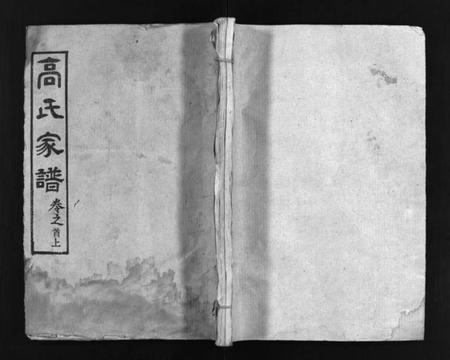 高氏家譜卷之首上